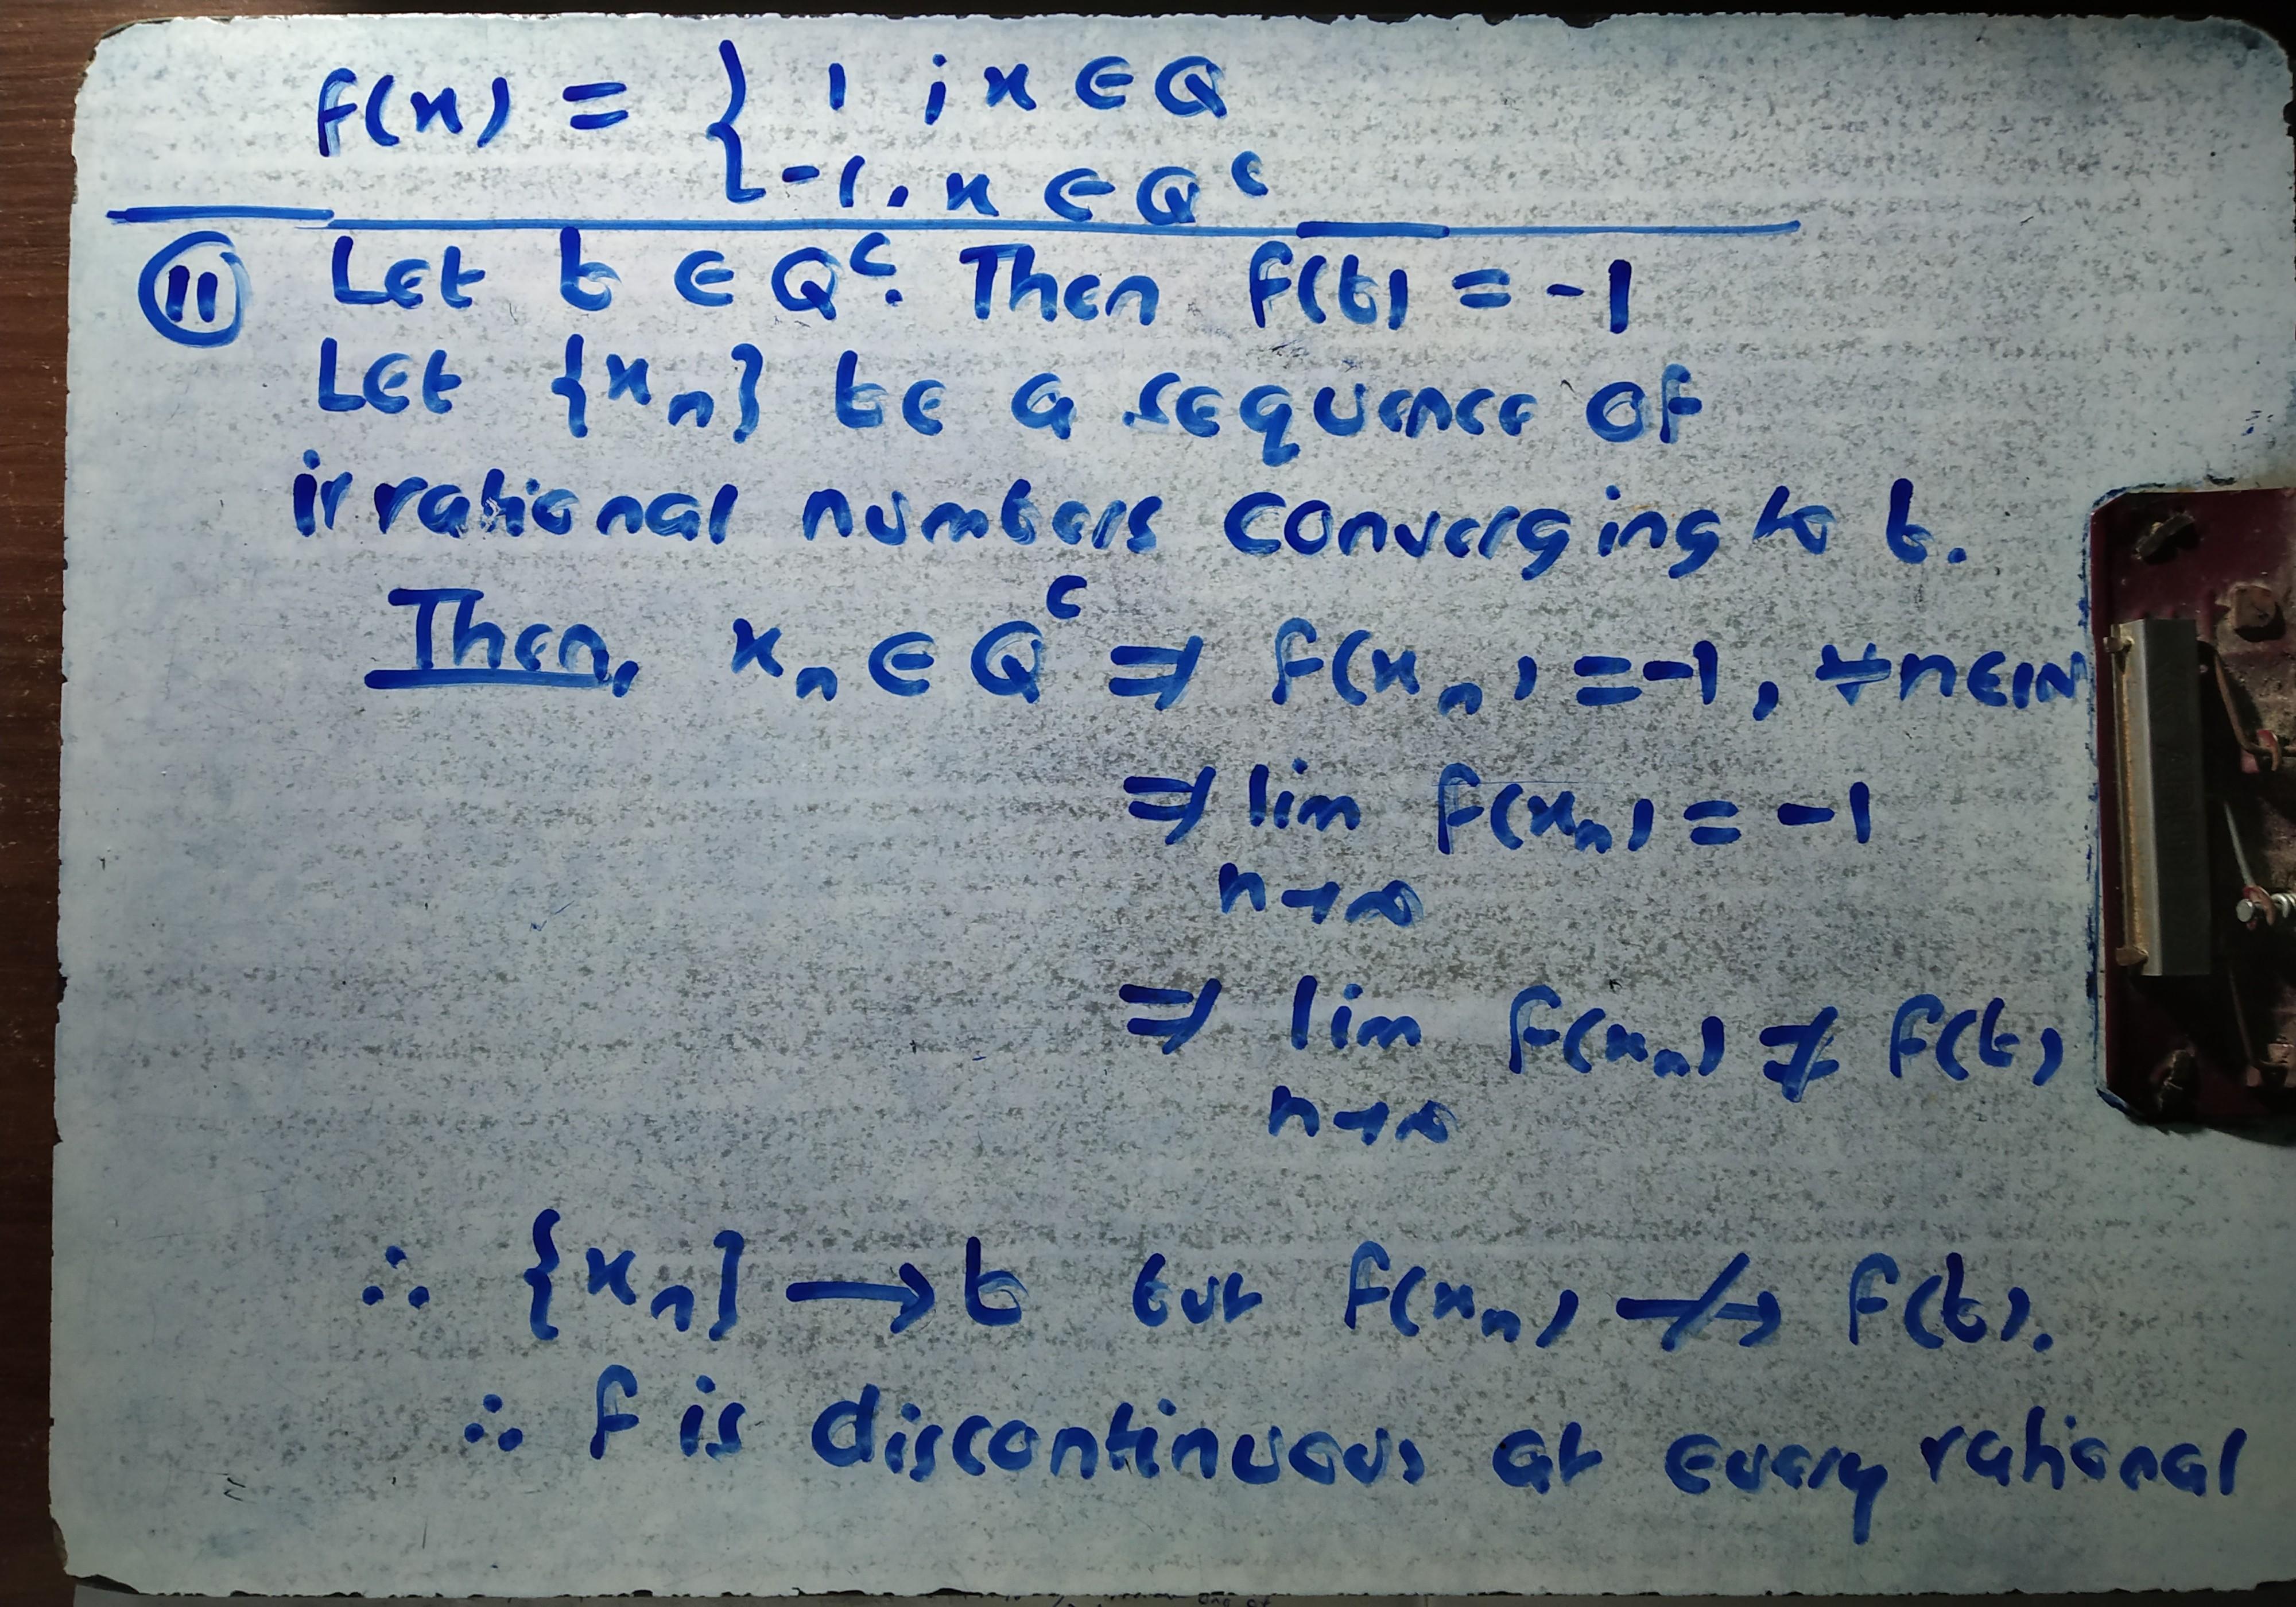 f(x) = { 1 ; x ∈ Q
-1, x ∈ Qᶜ
(11) Let b ∈ Qᶜ. Then f(b) = -1
Let {xₙ} be a sequence of
irrational numbers converging to b.
Then, xₙ ∈ Qᶜ ⇒ f(xₙ) = -1, ∀ n ∈ IN
⇒ lim f(xₙ) = -1
n→∞
⇒ lim f(xₙ) ≠ f(b)
n→∞
∴ {xₙ} → b but f(xₙ) ↛ f(b).
∴ f is discontinuous at every rational